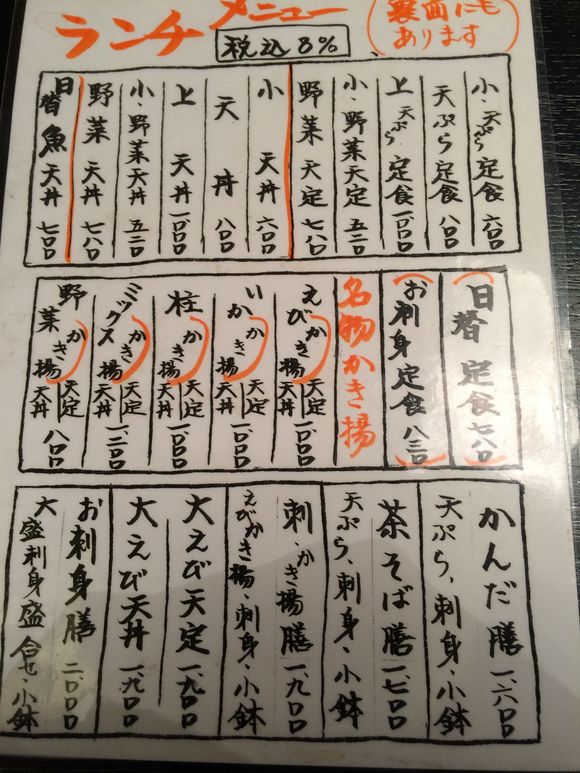 ランチメニュー
裏面にも
あります
税込8%
小・天ぷら定食 六〇〇
天ぷら定食 八〇〇
上天ぷら定食 一、〇〇〇
小・野菜天定 五二〇
野菜天定 七八〇
小天丼 六〇〇
天丼 八〇〇
上天丼 一、〇〇〇
小・野菜天丼 五二〇
野菜天丼 七八〇
日替魚天丼 七〇〇
日替定食 七八〇
お刺身定食 八三〇
名物かき揚
えびかき揚 天定 天丼 一、〇〇〇
いかかき揚 天定 天丼 一、〇〇〇
柱かき揚 天定 天丼 一、〇〇〇
ミックスかき揚 天定 天丼 一、二〇〇
野菜かき揚 天定 天丼 八〇〇
かんだ膳 一、六〇〇
天ぷら、刺身、小鉢
茶そば膳 一、七〇〇
天ぷら、刺身・小鉢
刺・かき揚膳 一、九〇〇
えびかき揚・刺身・小鉢
大えび天定 一、九〇〇
大えび天丼 一、九〇〇
お刺身膳 二、〇〇〇
大盛刺身盛合せ・小鉢